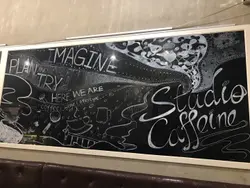 IMAGINE
PLAN
TRY
HERE WE ARE
Studio
Caffeine